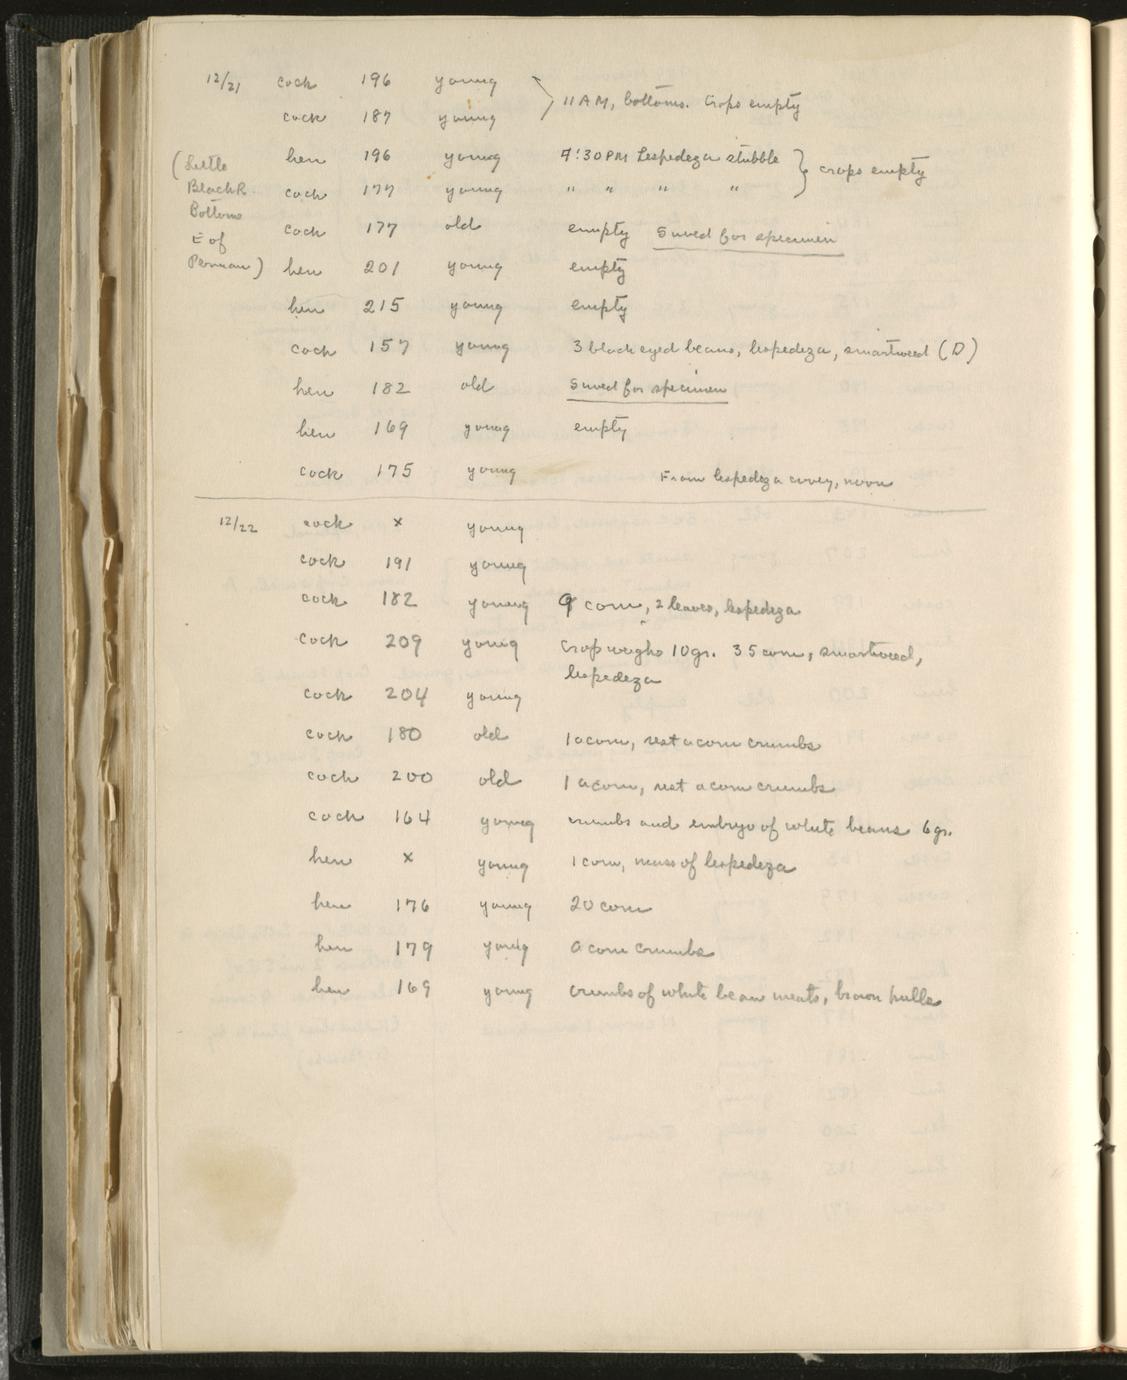 12/21 cock 196 young } 11 AM, bottoms. Crops empty
cock 187 young
(Little hen 196 young 4:30 PM Lespedeza stubble } crops empty
Black R. cock 177 young " " " "
Bottoms cock 177 old empty Saved for specimen
E of hen 201 young empty
) hen 215 young empty
cock 157 young 3 black eyed beans, lespedeza, smartweed (D)
hen 182 old Saved for specimen
hen 169 young empty
cock 175 young From lespedeza covey, noon
12/22 cock x young
cock 191 young
cock 182 young 9 corn, 2 leaves, lespedeza
cock 209 young Crop weighs 10 gr. 35 corn, smartweed,
lespedeza
cock 204 young
cock 180 old 1 acorn, rest acorn crumbs
cock 200 old 1 acorn, rest acorn crumbs
cock 164 young crumbs and embryo of white beans 6 gr.
hen x young 1 corn, mass of lespedeza
hen 176 young 20 corn
hen 179 young acorn crumbs
hen 169 young crumbs of white bean meats, brown hulls